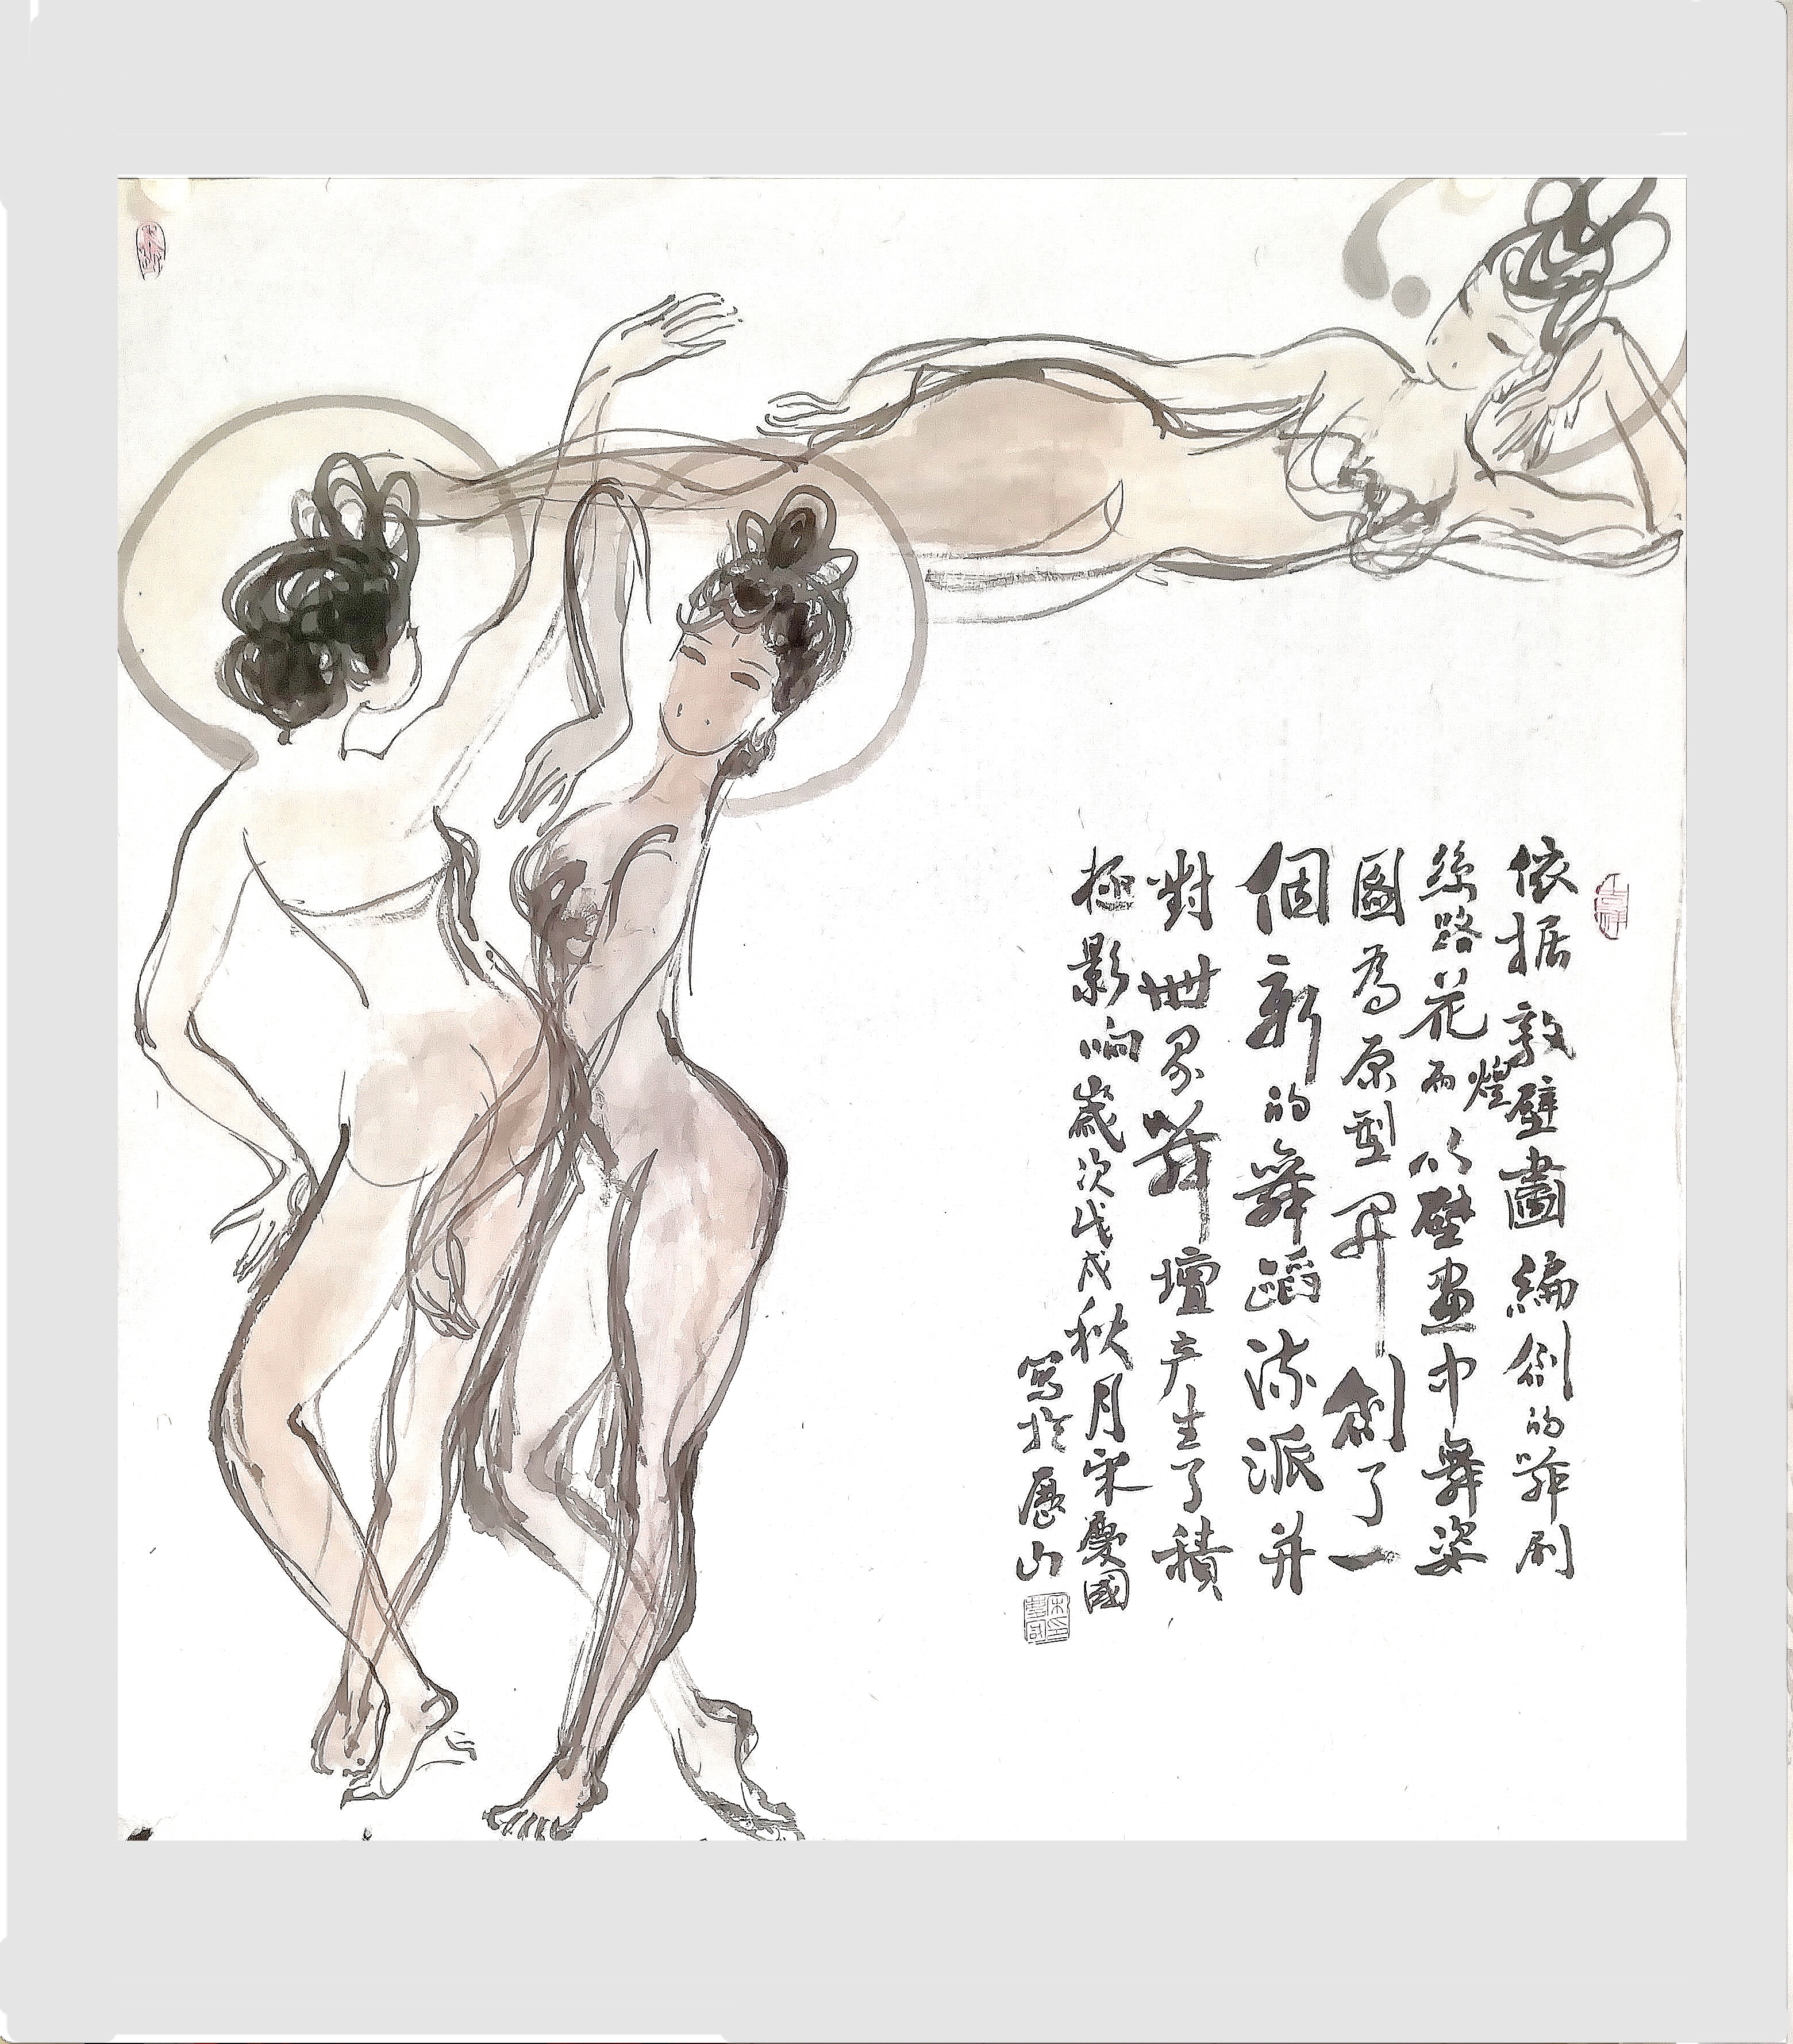 依据敦煌壁畫編創的舞剧
絲路花雨以壁畫中舞姿
圖為原型開創了一
個新的舞蹈流派并
對世界舞壇产生了積
極影响歲次戊戌秋月宋慶國
寫於歷山